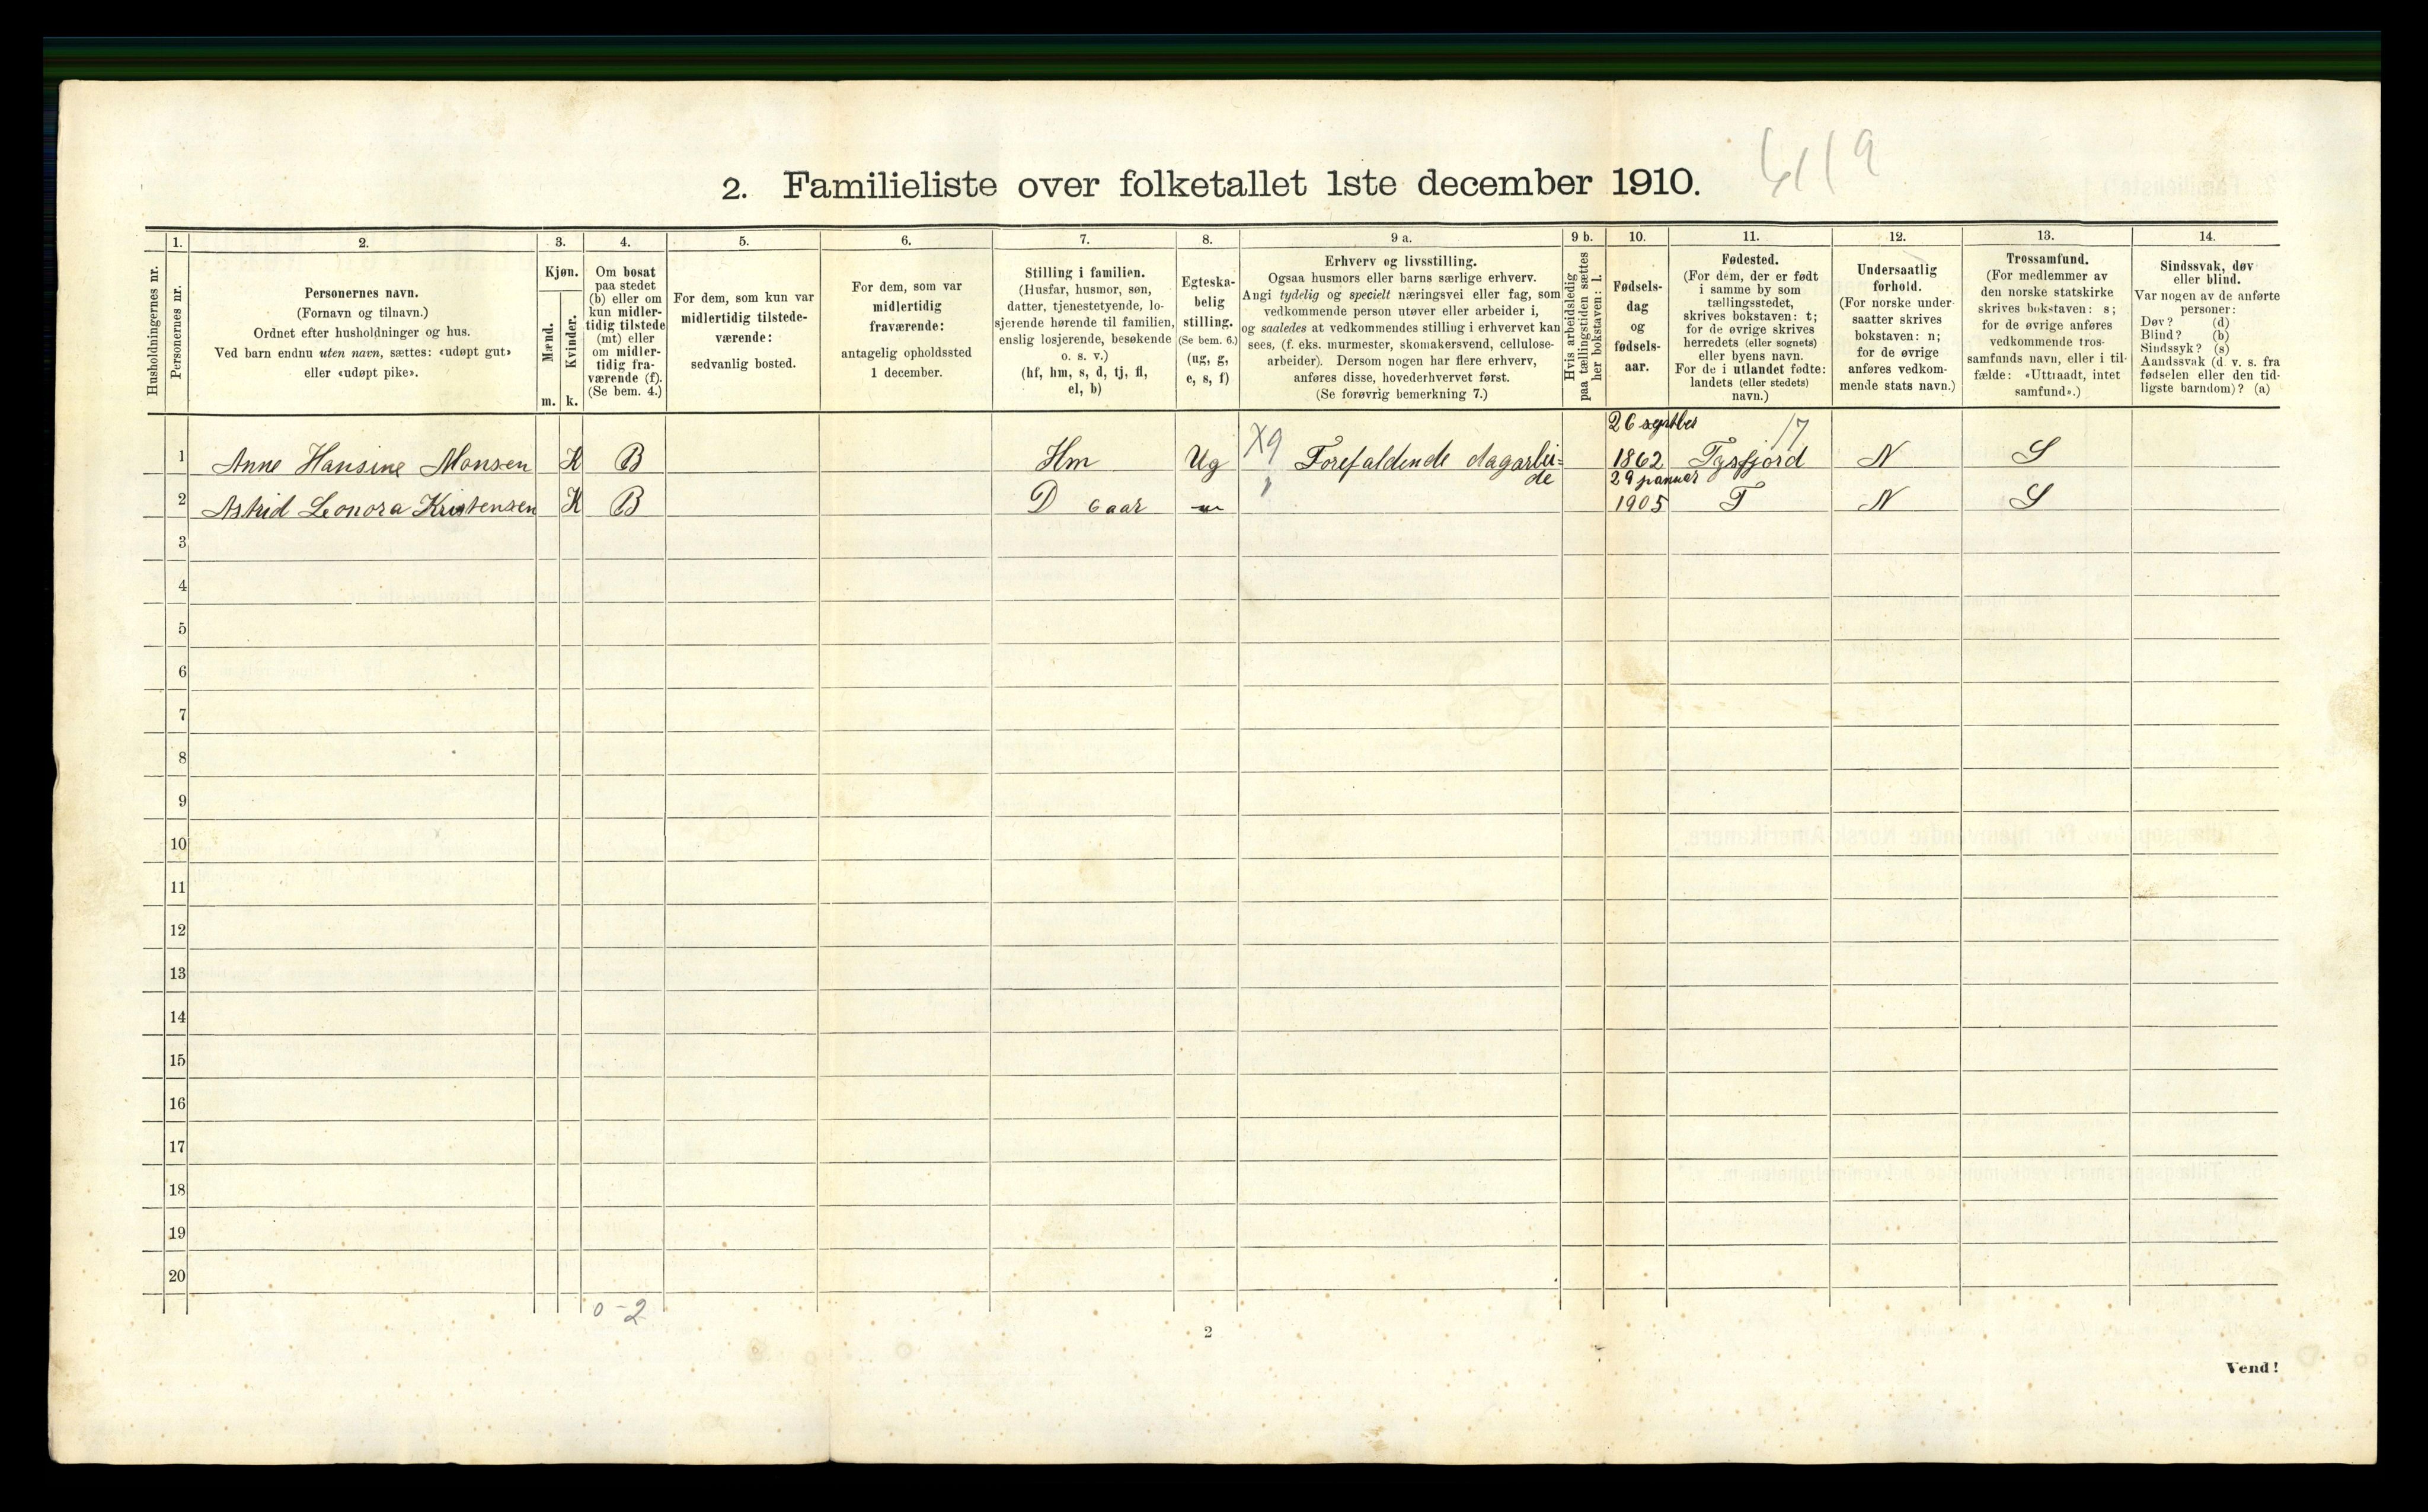 2. Familieliste over folketallet 1ste december 1910.
1. 2. 3. 4. 5. 6. 7. 8. 9 a. 9 b. 10. 11. 12. 13. 14.
Husholdningernes nr.
Personernes nr.
Personernes navn.
(Fornavn og tilnavn.)
Ordnet efter husholdninger og hus.
Ved barn endnu uten navn, sættes: «udøpt gut»
eller «udøpt pike».
Kjøn.
Mænd.
Kvinder.
m. k.
Om bosat
paa stedet
(b) eller om
kun midler-
tidig tilstede
(mt) eller
om midler-
tidig fra-
værende (f).
(Se bem. 4.)
For dem, som kun var
midlertidig tilstede-
værende:
sedvanlig bosted.
For dem, som var
midlertidig
fraværende:
antagelig opholdssted
1 december.
Stilling i familien.
(Husfar, husmor, søn,
datter, tjenestetyende, lo-
sjerende hørende til familien,
enslig losjerende, besøkende
o. s. v.)
(hf, hm, s, d, tj, fl,
el, b)
Egteska-
belig
stilling.
(Se bem. 6.)
(ug, g,
e, s, f)
Erhverv og livsstilling.
Ogsaa husmors eller barns særlige erhverv.
Angi tydelig og specielt næringsvei eller fag, som
vedkommende person utøver eller arbeider i,
og saaledes at vedkommendes stilling i erhvervet kan
sees, (f. eks. murmester, skomakersvend, cellulose-
arbeider). Dersom nogen har flere erhverv,
anføres disse, hovederhvervet først.
(Se forøvrig bemerkning 7.)
Hvis arbeidsledig
paa tællingstiden sættes
her bokstaven: l.
Fødsels-
dag
og
fødsels-
aar.
Fødested.
(For dem, der er født
i samme by som
tællingsstedet,
skrives bokstaven: t;
for de øvrige skrives
herredets (eller sognets)
eller byens navn.
For de i utlandet fødte:
landets (eller stedets)
navn.)
Undersaatlig
forhold.
(For norske under-
saatter skrives
bokstaven: n;
for de øvrige
anføres vedkom-
mende stats navn.)
Trossamfund.
(For medlemmer av
den norske statskirke
skrives bokstaven: s;
for de øvrige anføres
vedkommende tros-
samfunds navn, eller i til-
fælde: «Uttraadt, intet
samfund».)
Sindssvak, døv
eller blind.
Var nogen av de anførte
personer:
Døv? (d)
Blind? (b)
Sindssyk? (s)
Aandssvak (d. v. s. fra
fødselen eller den tid-
ligste barndom)? (a)
26 septbr 17
1 Anne Hansine Monsen K B Hm Ug X9 Forefaldende dagarbei-
de 1862 Tysfjord N S
29 januar
2 Astrid Leonora Kristensen K B D 6 aar 1905 T N S
3
4
5
6
7
8
9
10
11
12
13
14
15
16
17
18
19
20
0-2
2
Vend!